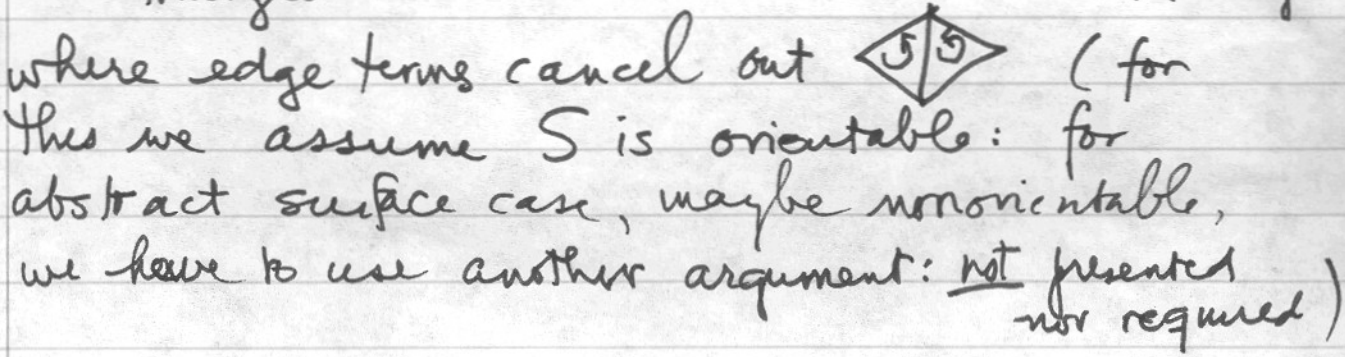 where edge terms cancel out (for
this we assume S is orientable: for
abstract surface case, maybe nonorientable,
we have to use another argument: not presented
nor required)